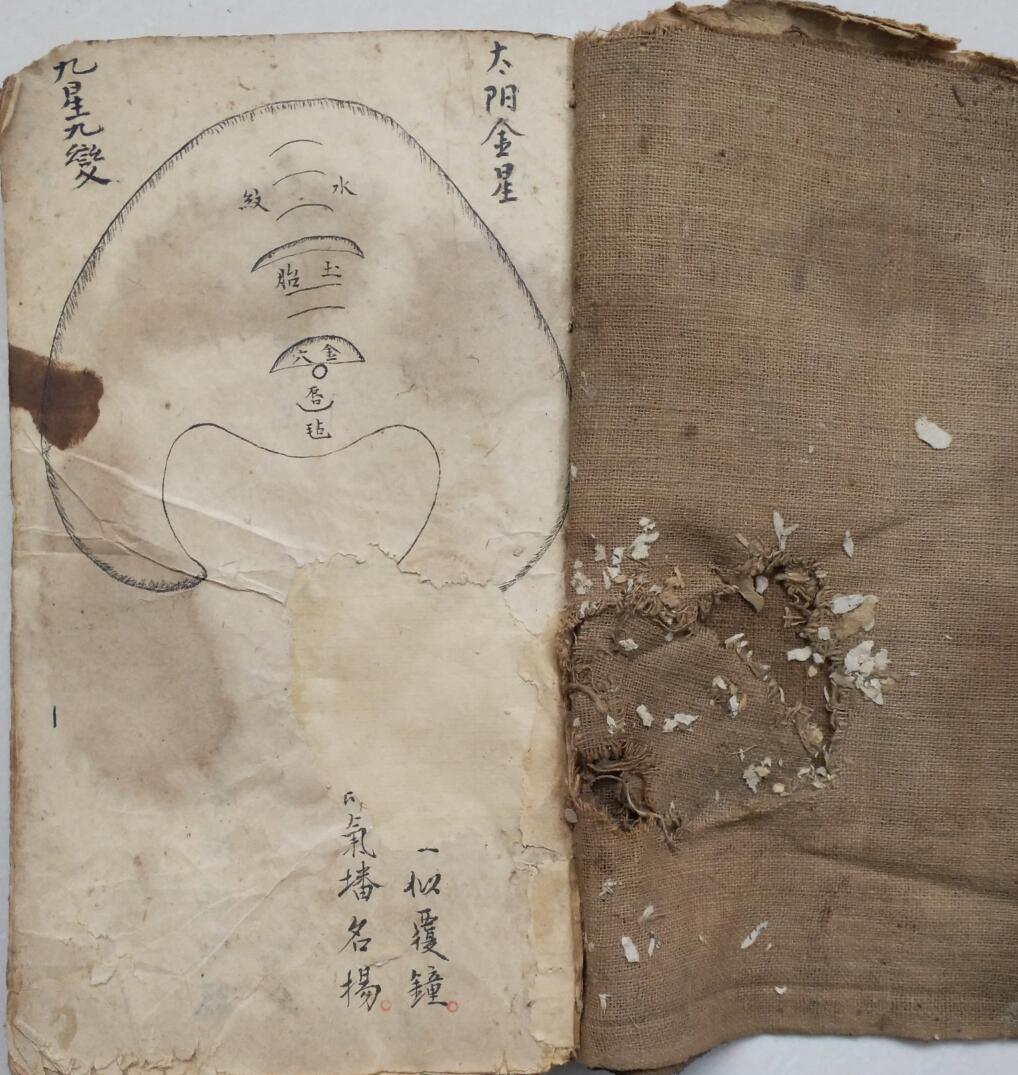 太阳金星
水
紋
土
胎
金
穴
唇
毡
一似覆鐘
氣墦名揚
九星九變